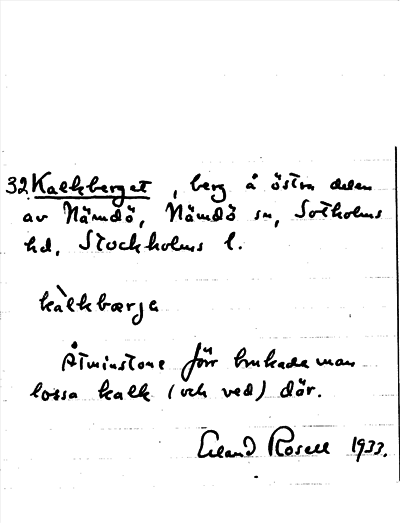 32. Kalkberget, berg å östra delen
av Nämdö, Nämdö sn, Sotholms
hd, Stockholms l.
kàlkbærja
Åtminstone förr brukade man
lossa kalk (och ved) där.
Erland Rosell 1933.